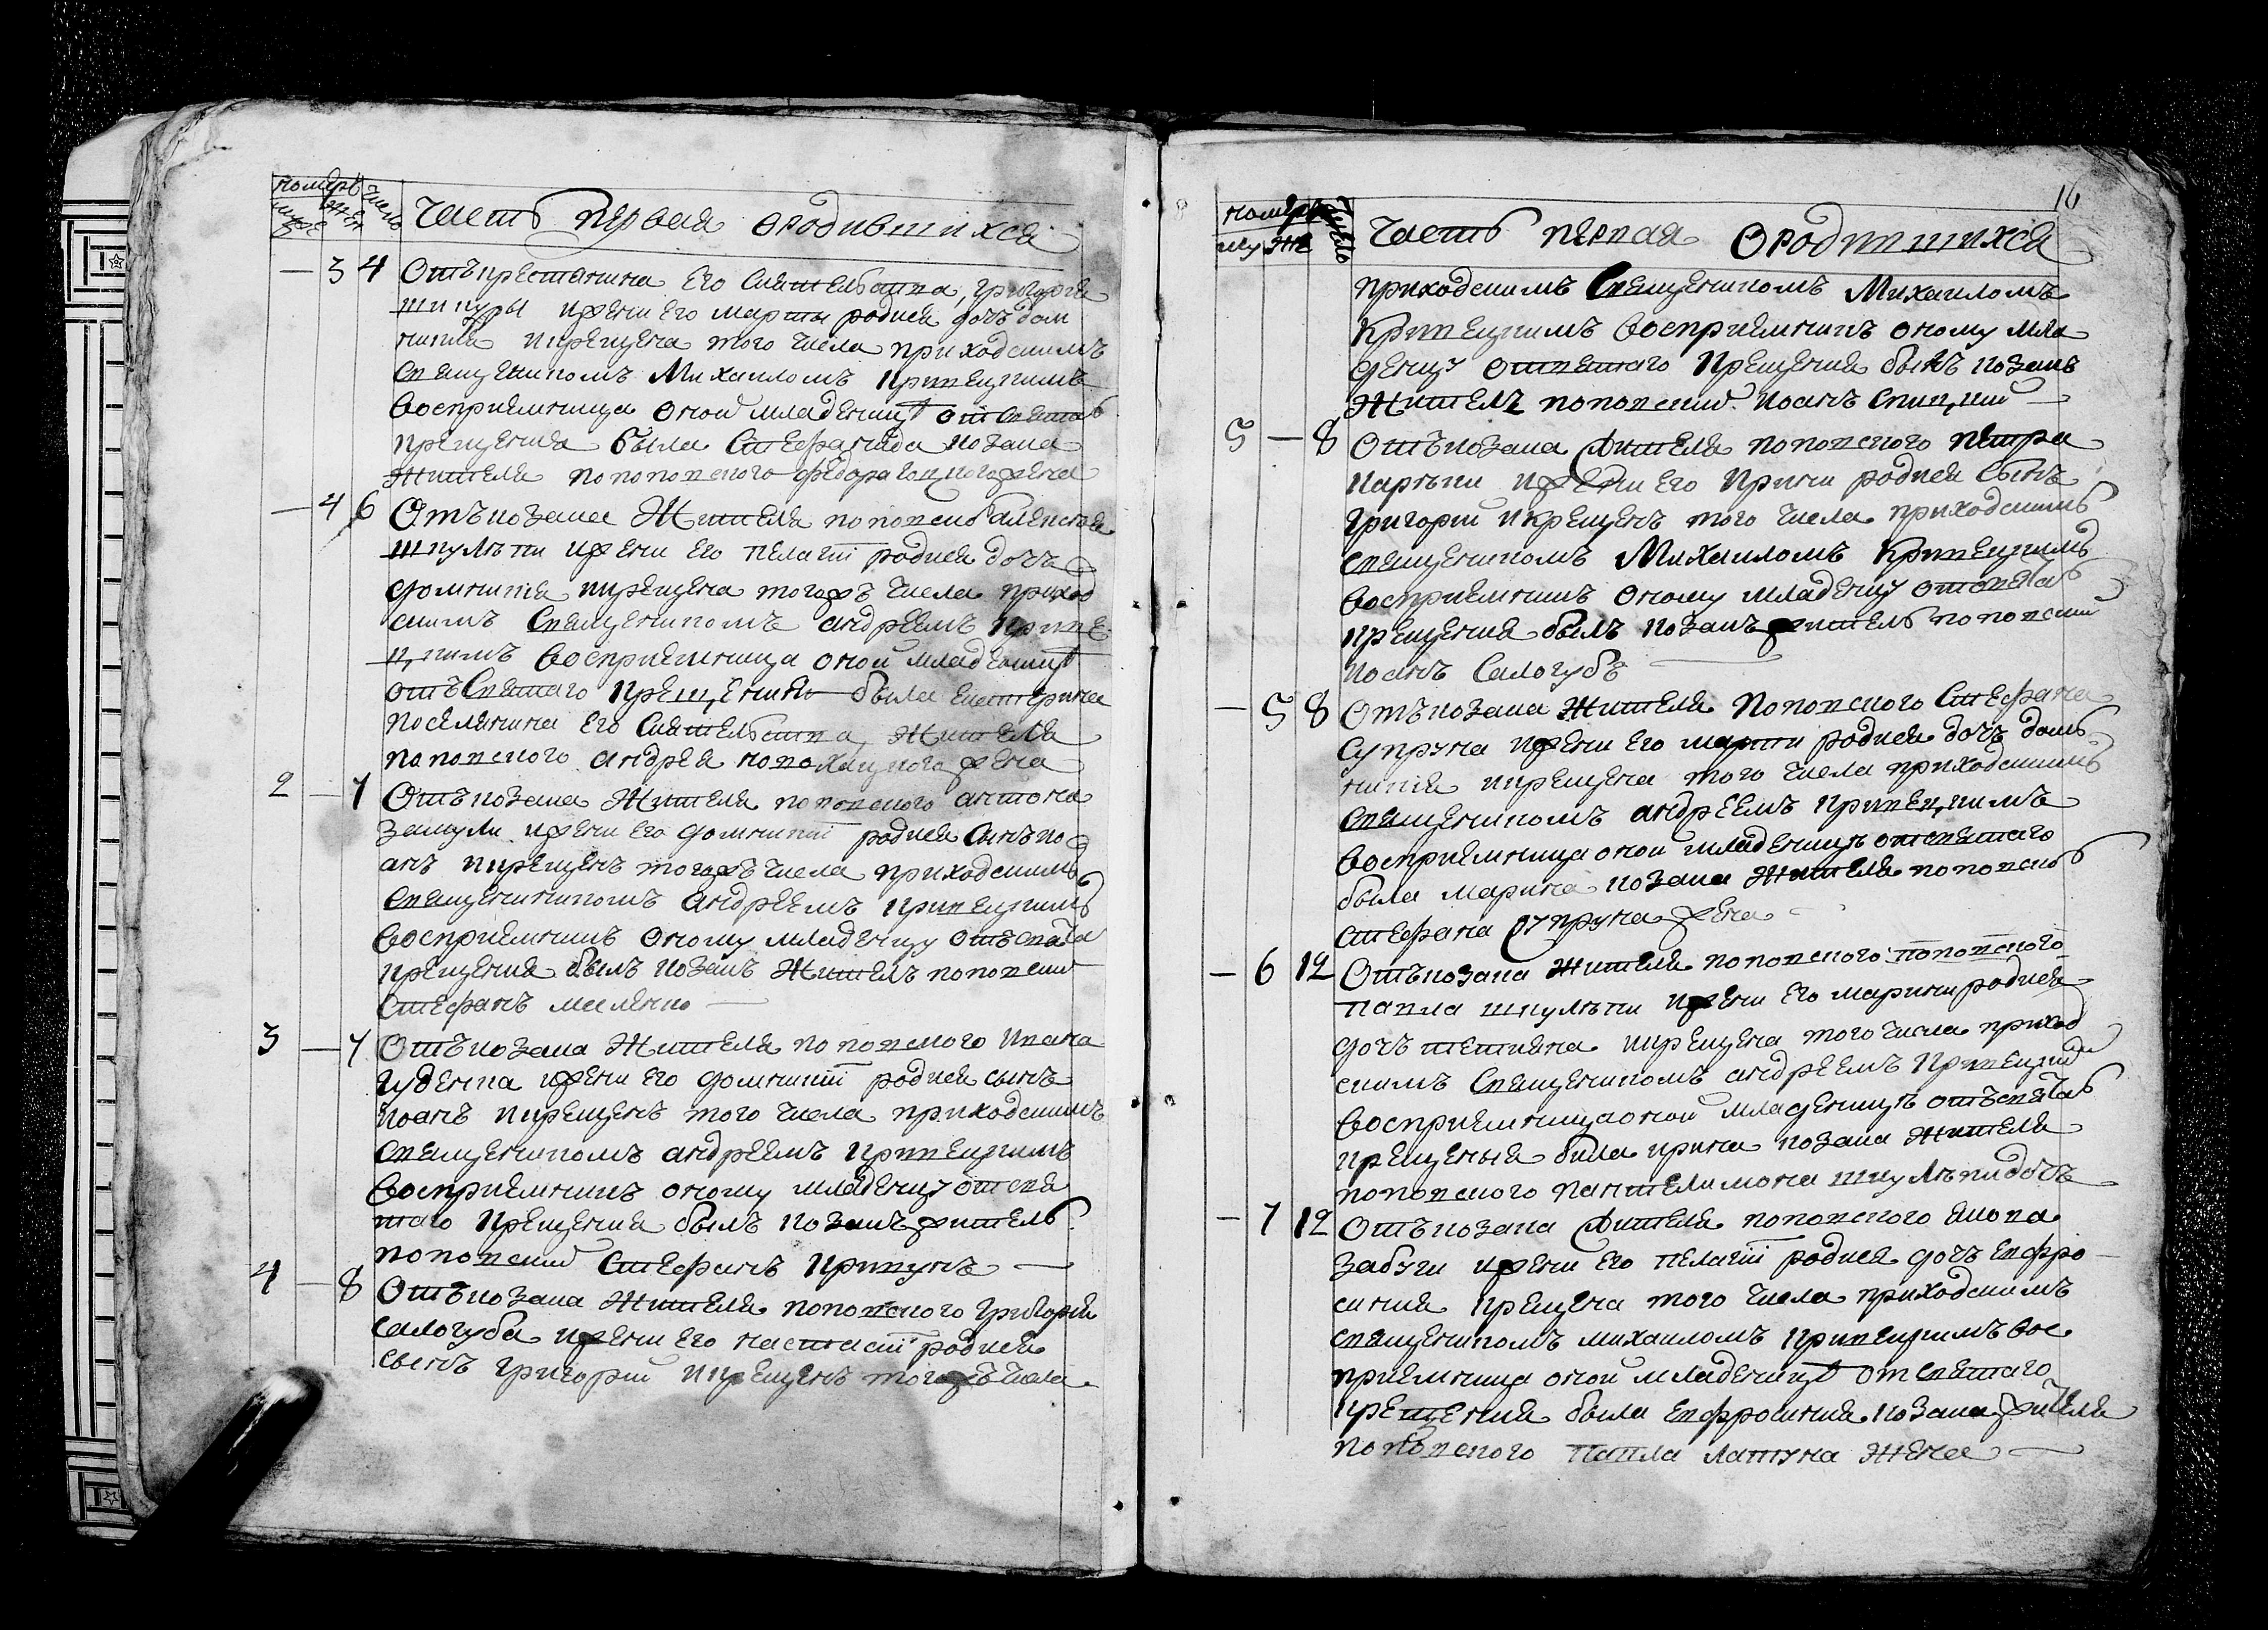 номеръ число
муж жен
Часть первая ородившихся
— 3 4 Отъкрестянина Его Сиятелства, григория
шкуры ижени Его марты родися дочъ дом
никия икрещена того числа приходскимъ
священикомъ Михаиломъ Кривецкимъ
восприемница оной младеницѣ от свята
крещения была Стефанида козака
жителя поповского федора женa
— 4 6 Отъкозака Жителя поповско алексея
шкулѣпи ижени Его пелагіи родися дочъ
домникія икрещена тогожъ числа приход
скимъ Священикомъ андреемъ криве
цкимъ восприемница оной младеницѣ
отъСвятаго Крещения была екатерина
поселянина Его Сиятелства, жителя
поповского андрея жена
2 — 7 Отъкозака Жителя поповского антона
ижени Его домникіи родися Синъ ио
анъ икрещенъ тогожъ числа приходскимъ
Священникомъ андреемъ кривецкимъ
восприемникъ оному младенцу отъсвята
крещения былъ козакъ Жителъ поповский
Стефанъ масленко —
3 — 7 Отъкозака Жителя поповского ивана
гуденка ижени Его домникіи родися сынъ
иоанъ икрещенъ того числа приходскимъ
священикомъ андреемъ кривецкимъ
восприемникъ оному младенцу отсвя
таго Крещения былъ козакъ житель
поповский Стефанъ Крикунъ —
4 — 8 Отъкозака Жителя поповского григория
салогуба ижени Его настасіи родися
сынъ григорий икрещенъ тогожъ числа
16
номеръ число
му же
Часть первая Ородившихся
приходскимъ Священикомъ Михаиломъ
Кривецкимъ восприемникъ оному мла
денцу отсвятаго Крещения былъ козакъ
Жителъ поповский иоанъ
5 — 8 Отъкозака жителя поповского петра
ижени Его Ирини родися сынъ
григорий икрещенъ того числа приходскимъ
священикомъ Михаиломъ Кривецкимъ
восприемникъ оному младенцу отсвята
крещения былъ козакъ житель поповский
иоанъ Салогубъ —
— 5 8 Отъкозака жителя поповского Стефана
Супруна ижени Его марти родися дочъ дом
никія икрещена того числа приходскимъ
священикомъ андреемъ кривецкимъ
восприемница оной младеницѣ отсвятаго
была марина козака жителя поповско
стефана супруна жена —
— 6 12 Отъкозака жителя поповского поповского
павла шкулѣпи ижени Его марини родися
дочъ тетияна икрещена того числа приход
скимъ Священикомъ андреемъ Кривецким
восприемница оной младеницѣ отъсвятаг
крещеныя била ирина козака жителя
поповского пантелимона шкулѣпи дочъ
— 7 12 Отъкозака жителя поповского якова
забуги ижени Его пелагіи родися дочъ евфро
синия крещена того числа приходскимъ
священикомъ михаиломъ кривецкимъ вос
приемница оной младеницѣ от святаго
крещения была евфросиния козака жителя
поповского павла латуна жена —